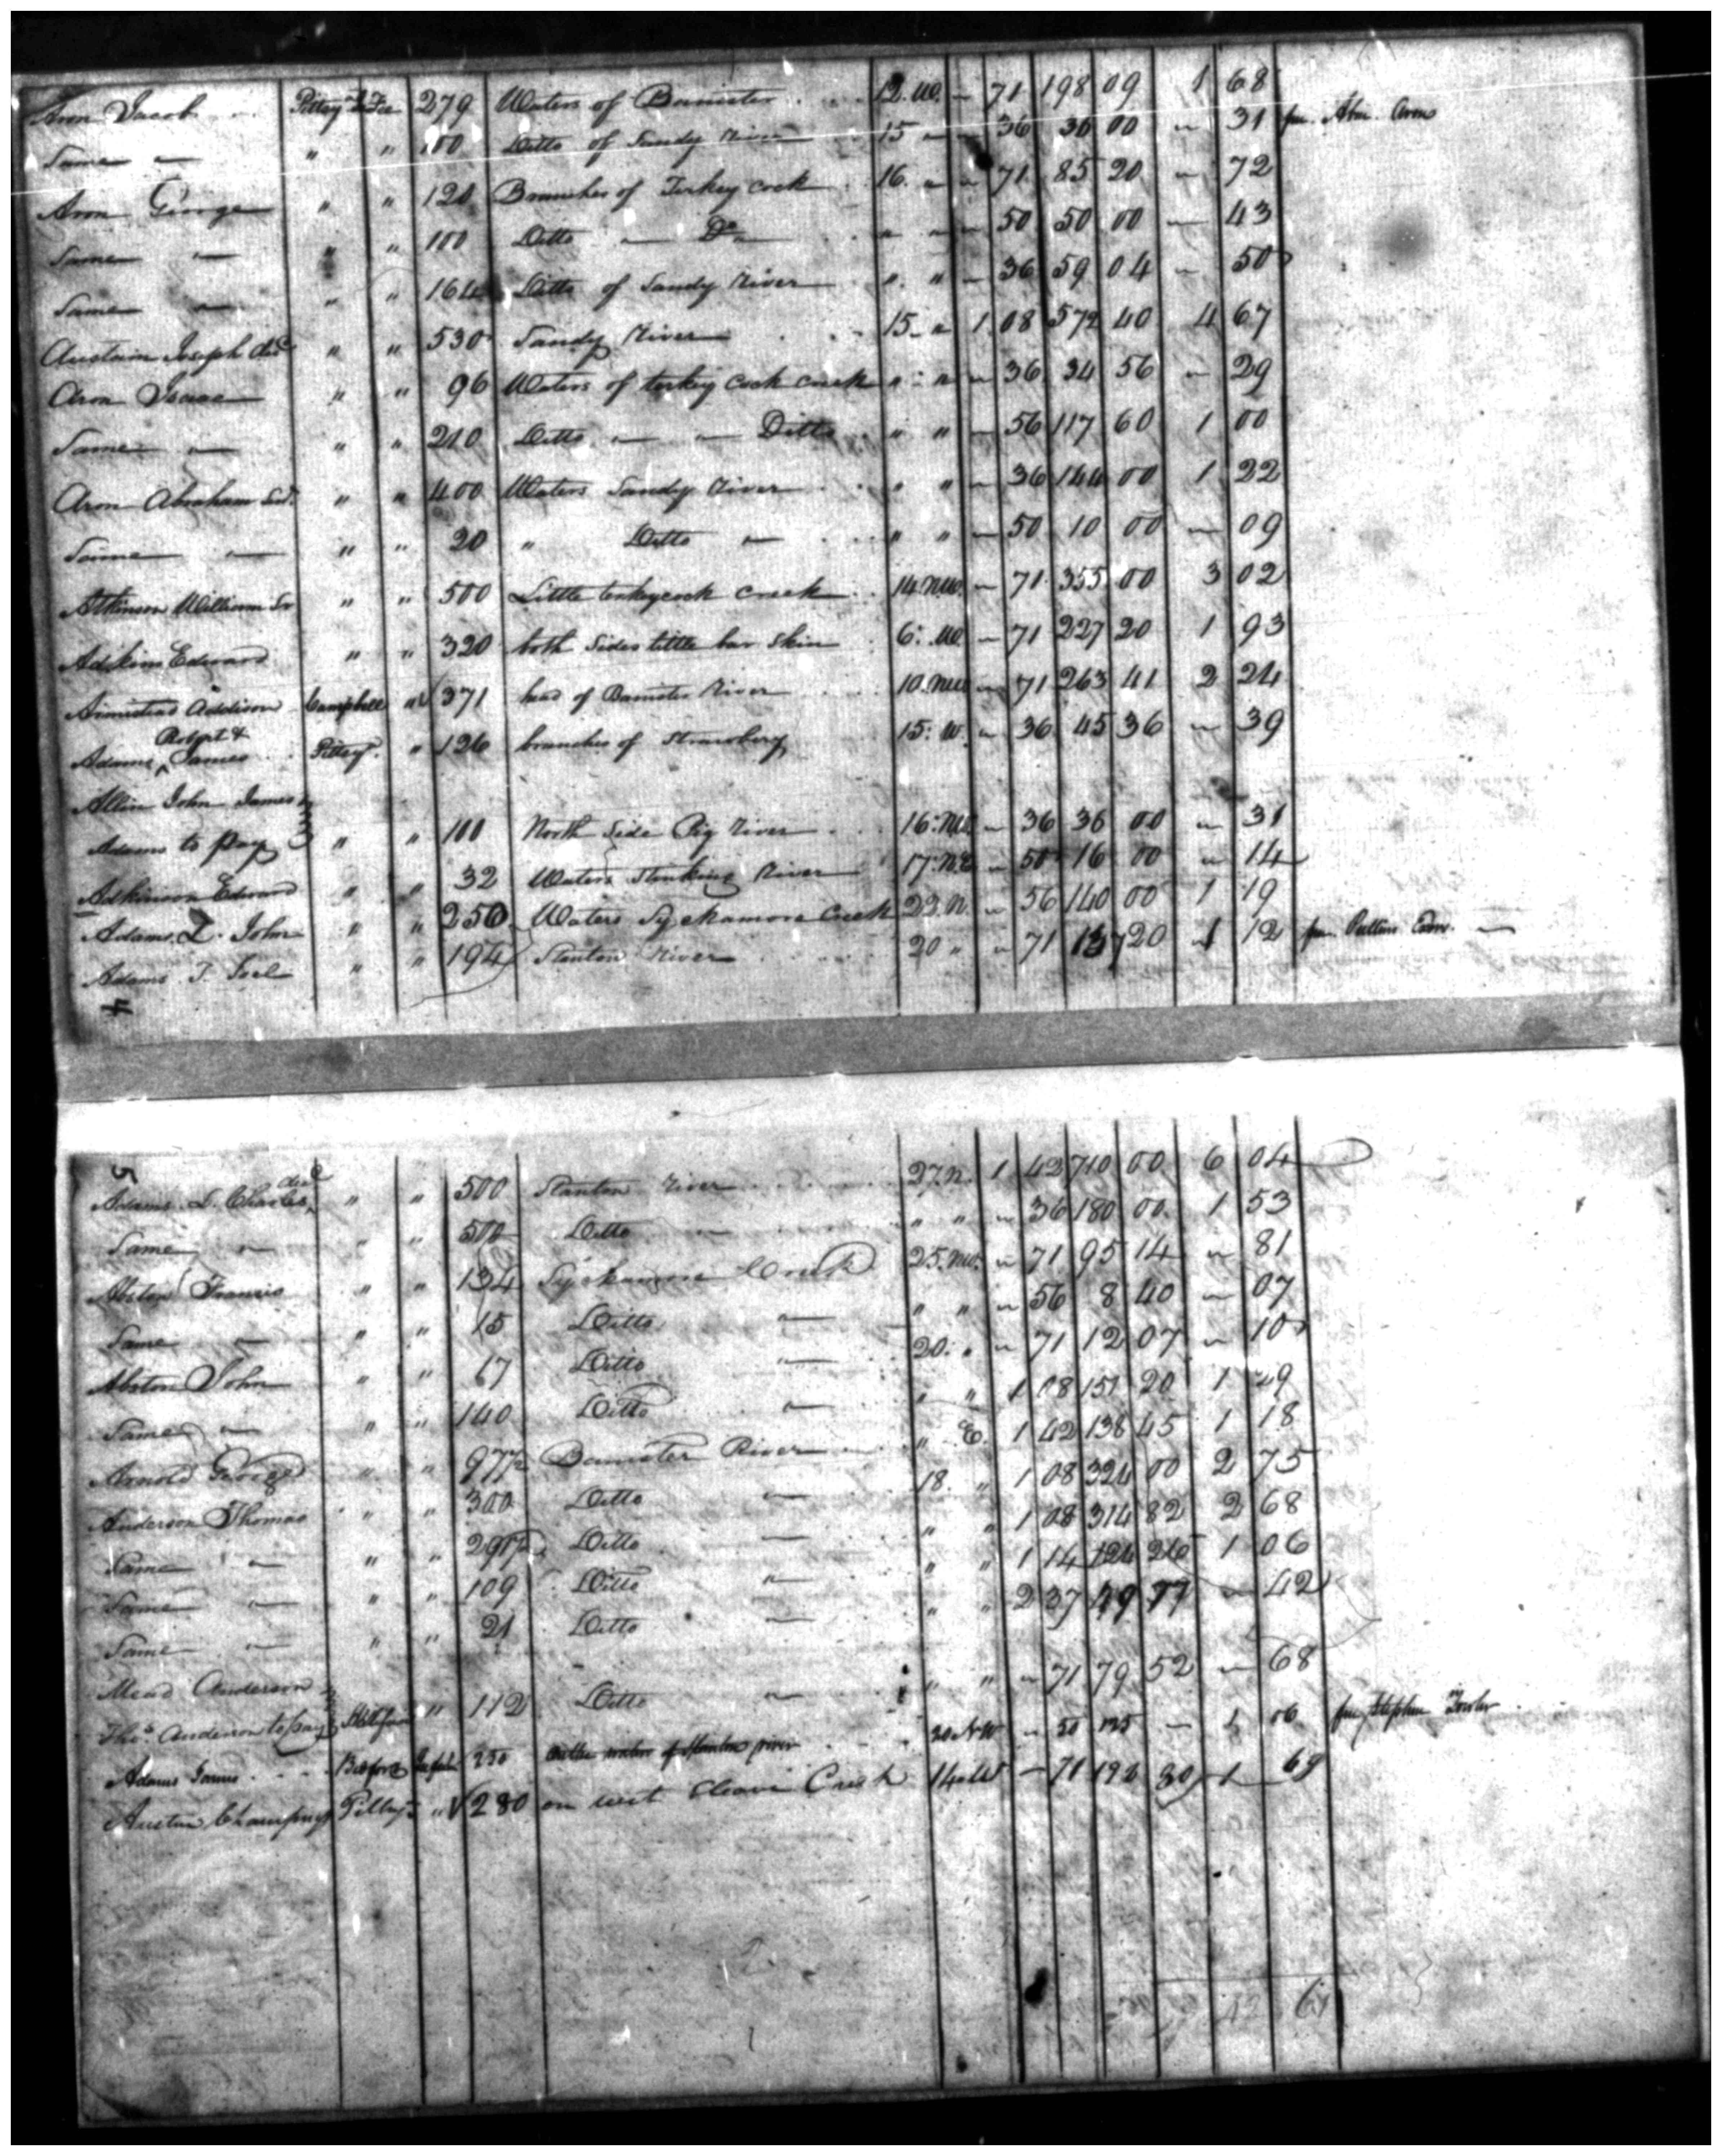 Aron Jacob Pittsyl.a Fee 279 Waters of Banister 12. W. — 71 198 09 1 68
Same — " " 100 Ditto of Sandy River 15 — — 36 36 00 — 31 fm. Abm. Aron
Aron George " " 120 Branches of Turkey Cock 16. " — 71 85 20 — 72
Same — " " 100 Ditto — Do — " " — 50 50 00 — 43
Same — " " 164 Ditto of Sandy River " " — 36 59 04 — 50
Austain Joseph decd " " 530 Sandy River 15 " 1 08 572 40 4 67
Aron Isaac " " 96 Waters of turkey Cock creek " " — 36 34 56 — 29
Same — " " 210 Ditto — — Ditto " " — 56 117 60 1 00
Aron Abraham Sr. " " 400 Waters Sandy River " " — 36 144 00 1 22
Same — " " 20 " Ditto — " " — 50 10 00 — 09
Atkinson William Sr " " 500 Little turkeycock creek 14. NW. — 71 355 00 3 02
Adkins Edward " " 320 both Sides little bar skin 6. W. — 71 227 20 1 93
Armistead Addison Campbell " 371 head of Banister River 10. NW — 71 263 41 2 24
Robert &
Adams ^ James Pittsyl. " 126 branches of Strawberry 15. W. — 36 45 36 — 39
Allin John James
Adams to pay " " 100 North Side Pig River 16. NW — 36 36 00 — 31
Adkinson Edward " " 32 Waters Stinking River 17. N.E — 50 16 00 — 14
Adams L. John " " 250 Waters Syckamore Creek 22. N. — 56 140 00 1 19
Adams T. Joel " " 194 Stanton River 20 " — 71 137 20 1 12 fm.
5
Adams L. Charles decd " " 500 Stanton River 27. N. 1 42 710 00 6 04
Same — " " 500 Ditto — " " — 36 180 00 1 53
Abston Francis " " 134 Syckamore Creek 25. NW. — 71 95 14 — 81
Same — " " 15 Ditto — " " — 56 8 40 — 07
Abston John " " 17 Ditto — 20. " — 71 12 07 — 10
Same — " " 140 Ditto — " " 1 08 151 20 1 29
Arnold George " " 97½ Banister River — " E. 1 42 138 45 1 18
Anderson Thomas " " 300 Ditto — 18. " 1 08 324 00 2 75
Same — " " 291½ Ditto — " " 1 08 314 82 2 68
Same — " " 109 Ditto — " " 1 14 124 26 1 06
Same — " " 21 Ditto — " " 2 37 49 77 — 42
Mead Anderson
Thos. Anderson to pay Halifax " 112 Ditto — " " — 71 79 52 — 68
Adams James Bedford 250 on the waters of Stanton river 30 NW — 50 125 — 1 06 from Stephen Towler
Austin Champness Pittsyl. " 280 on west Cheavi Creek 14. W — 71 198 80 1 69